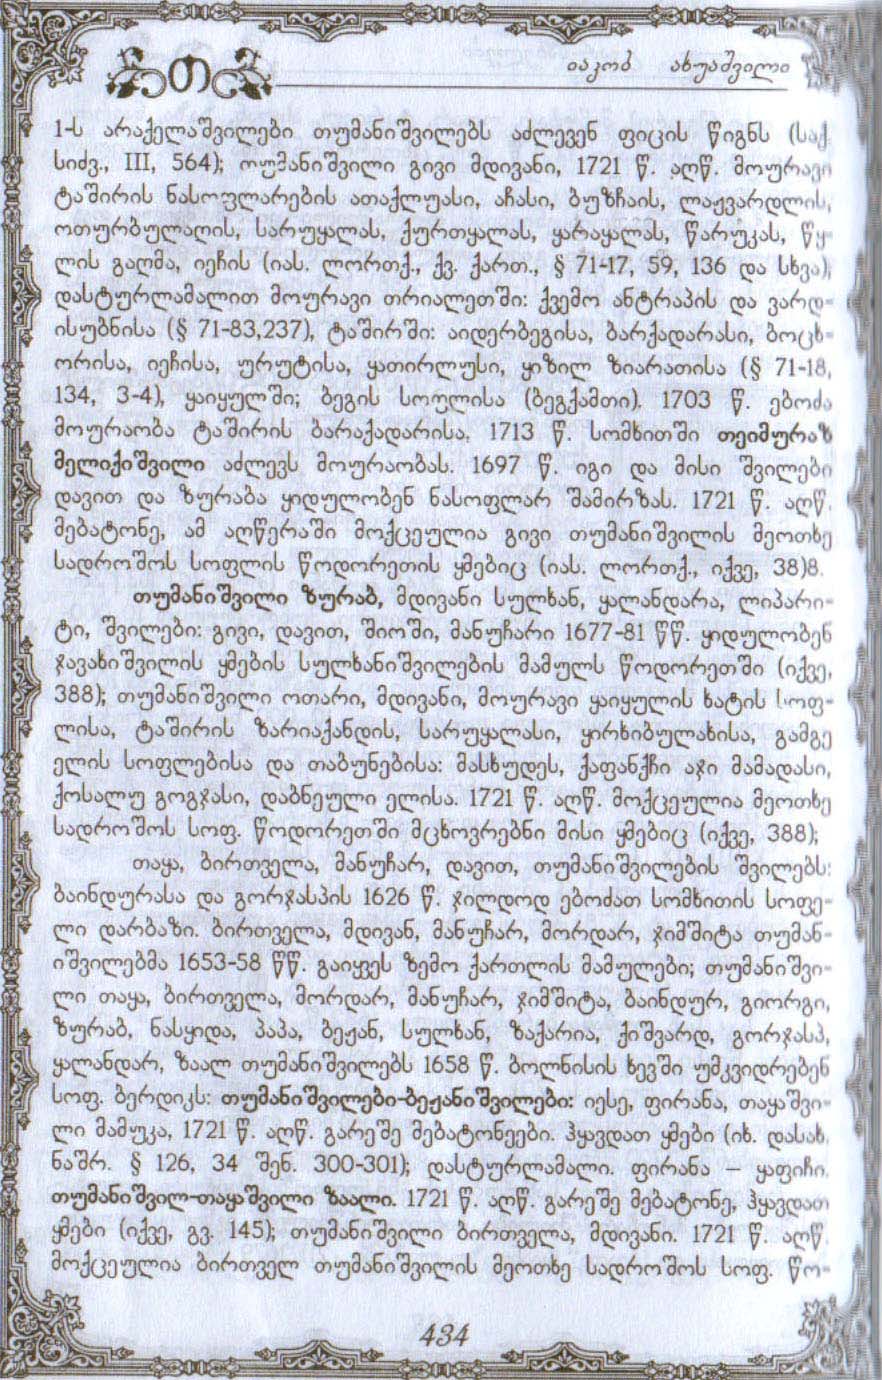 თ
იაკობ ახუაშვილი
1-ს არაქელაშვილები თუმანიშვილებს აძლევენ ფიცის წიგნს (საქ.
სიძვ., III, 564); თუმანიშვილი გივი მდივანი, 1721 წ. აღწ. მოურავი
ტაშირის ნასოფლარების ათაქლუასი, აჩასი, ბუზჩაის, ლაჟვარდლის,
ოთურბულაღის, სარუყალას, ქურთყალას, ყარაყალას, წარუკას, წყ-
ლის გაღმა, იეჩის (იას. ლორთქ., ქვ. ქართ., § 71-17, 59, 136 და სხვა);
დასტურლამალით მოურავი თრიალეთში: ქვემო ანტრაპის და ვარდ-
ისუბნისა (§ 71-83,237), ტაშირში: აიდერბეგისა, ბარქადარასი, ბოცხ-
ორისა, იეჩისა, ურუტისა, ყათირლუსი, ყიზილ ზიარათისა (§ 71-18,
134, 3-4), ყაიყულში; ბეგის სოფლისა (ბეგქამთი). 1703 წ. ებოძა
მოურაობა ტაშირის ბარაქადარისა. 1713 წ. სომხითში თეიმურაზ
მელიქიშვილი აძლევს მოურაობას. 1697 წ. იგი და მისი შვილები
დავით და ზურაბა ყიდულობენ ნასოფლარ შამირზას. 1721 წ. აღწ.
მებატონე, ამ აღწერაში მოქცეულია გივი თუმანიშვილის მეოთხე
სადროშოს სოფლის წოდორეთის ყმებიც (იას. ლორთქ., იქვე, 38)8.
თუმანიშვილი ზურაბ, მდივანი სულხან, ყალანდარა, ლიპარი-
ტი, შვილები: გივი, დავით, შიოში, მანუჩარი 1677-81 წწ. ყიდულობენ
ჯავახიშვილის ყმების სულხანიშვილების მამულს წოდორეთში (იქვე,
388); თუმანიშვილი ოთარი, მდივანი, მოურავი ყაიყულის ხატის სოფ-
ლისა, ტაშირის ზარიაქანდის, სარუყალასი, ყირხიბულახისა, გამგე
ელის სოფლებისა და თაბუნებისა: მასხუდეს, ქაფანქჩი აჯი მამადასი,
ქოსალუ გოგჯასი, დაბნეული ელისა. 1721 წ. აღწ. მოქცეულია მეოთხე
სადროშოს სოფ. წოდორეთში მცხოვრებნი მისი ყმებიც (იქვე, 388);
თაყა, ბირთველა, მანუჩარ, დავით, თუმანიშვილების შვილებს:
ბაინდურასა და გორჯასპის 1626 წ. ჯილდოდ ებოძათ სომხითის სოფე-
ლი დარბაზი. ბირთველა, მდივან, მანუჩარ, მორდარ, ჯიმშიტა თუმან-
იშვილებმა 1653-58 წწ. გაიყვეს ზემო ქართლის მამულები; თუმანიშვი-
ლი თაყა, ბირთველა, მორდარ, მანუჩარ, ჯიმშიტა, ბაინდურ, გიორგი,
ზურაბ, ნასყიდა, პაპა, ბეჟან, სულხან, ზაქარია, ქიშვარდ, გორჯასპ,
ყალანდარ, ზაალ თუმანიშვილებს 1658 წ. ბოლნისის ხევში უმკვიდრებენ
სოფ. ბერდიკს: თუმანიშვილები-ბეჟანიშვილები: იესე, ფირანა, თაყაშვი-
ლი მამუკა, 1721 წ. აღწ. გარეშე მებატონეები. ჰყავდათ ყმები (იხ. დასახ.
ნაშრ. § 126, 34 შენ. 300-301); დასტურლამალი. ფირანა – ყაფიჩი.
თუმანიშვილ-თაყაშვილი ზაალი. 1721 წ. აღწ. გარეშე მებატონე, ჰყავდათ
ყმები (იქვე, გვ. 145); თუმანიშვილი ბირთველა, მდივანი. 1721 წ. აღწ.
მოქცეულია ბირთველ თუმანიშვილის მეოთხე სადროშოს სოფ. წო-
434